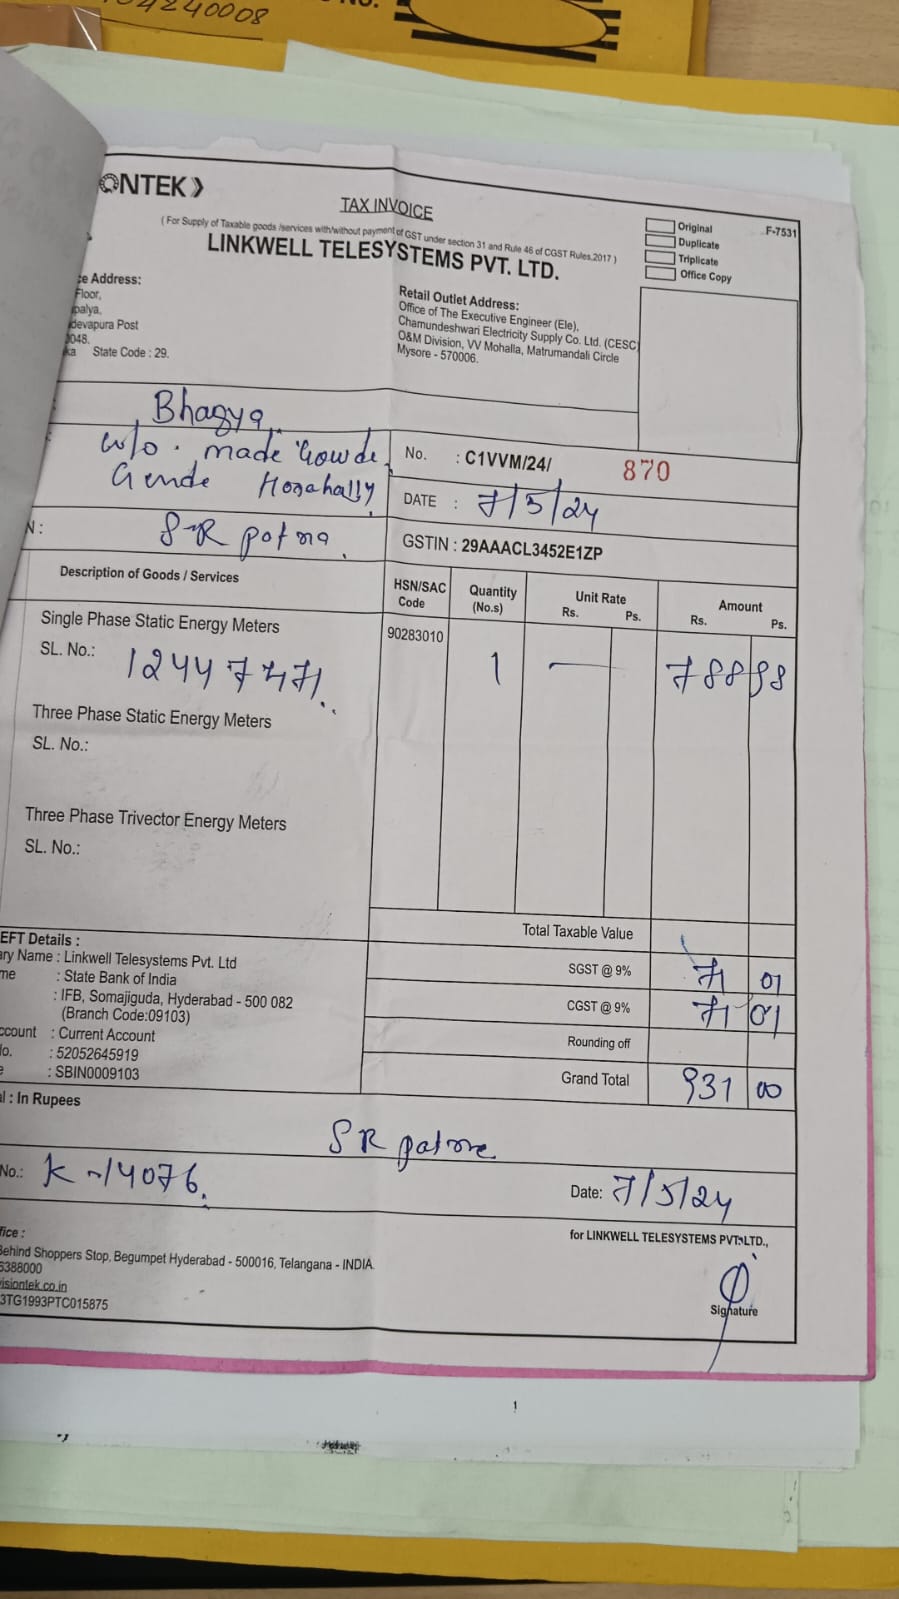 04240008
NO.
ONTEK
TAX INVOICE
( For Supply of Taxable goods /services with/without payment of GST under section 31 and Rule 46 of CGST Rules,2017 )
LINKWELL TELESYSTEMS PVT. LTD.
Original
Duplicate
Triplicate
Office Copy
F-7531
ce Address:
Floor,
palya,
devapura Post
0048.
ka State Code : 29.
Retail Outlet Address:
Office of The Executive Engineer (Ele),
Chamundeshwari Electricity Supply Co. Ltd. (CESC
O&M Division, VV Mohalla, Matrumandali Circle
Mysore - 570006.
Bhagya
w/o. made Gowde
Gende Hosahally
No. : C1VVM/24/ 870
DATE : 7/5/24
N : S-R patna
GSTIN : 29AAACL3452E1ZP
Description of Goods / Services
HSN/SAC Code
Quantity (No.s)
Unit Rate
Rs. Ps.
Amount
Rs. Ps.
Single Phase Static Energy Meters
90283010
1 — 788 98
SL. No.: 12447471
Three Phase Static Energy Meters
SL. No.:
Three Phase Trivector Energy Meters
SL. No.:
Total Taxable Value
SGST @ 9% 71 01
CGST @ 9% 71 01
Rounding off
Grand Total 931 00
EFT Details :
ary Name : Linkwell Telesystems Pvt. Ltd
me : State Bank of India
: IFB, Somajiguda, Hyderabad - 500 082
(Branch Code:09103)
ccount : Current Account
No. : 52052645919
e : SBIN0009103
al : In Rupees
S R patne
No.: K-14076.
Date: 7/5/24
for LINKWELL TELESYSTEMS PVT. LTD.,
Signature
ffice :
Behind Shoppers Stop, Begumpet Hyderabad - 500016, Telangana - INDIA.
6388000
visiontek.co.in
3TG1993PTC015875
1